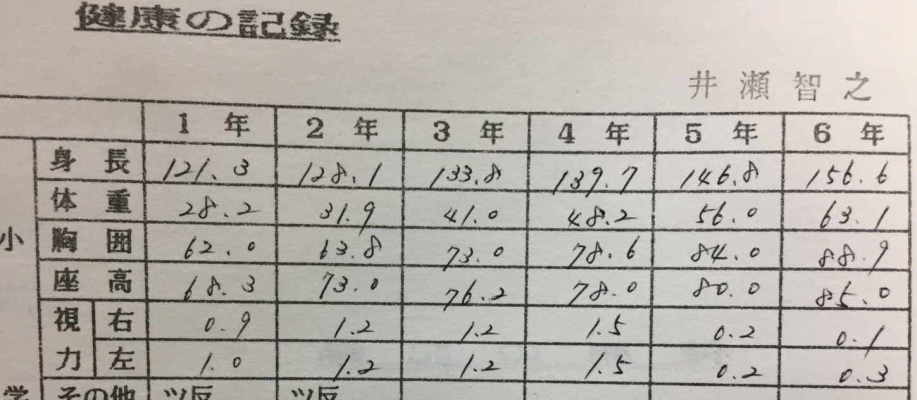 健康の記録
井瀬智之
1年 2年 3年 4年 5年 6年
身長 121.3 128.1 133.8 139.7 146.8 156.6
体重 28.2 31.9 41.0 48.2 56.0 63.1
小 胸囲 62.0 63.8 73.0 78.6 84.0 88.9
座高 68.3 73.0 76.2 78.0 80.0 85.0
視力 右 0.9 1.2 1.2 1.5 0.2 0.1
左 1.0 1.2 1.2 1.5 0.2 0.3
学 その他 ツ反 ツ反